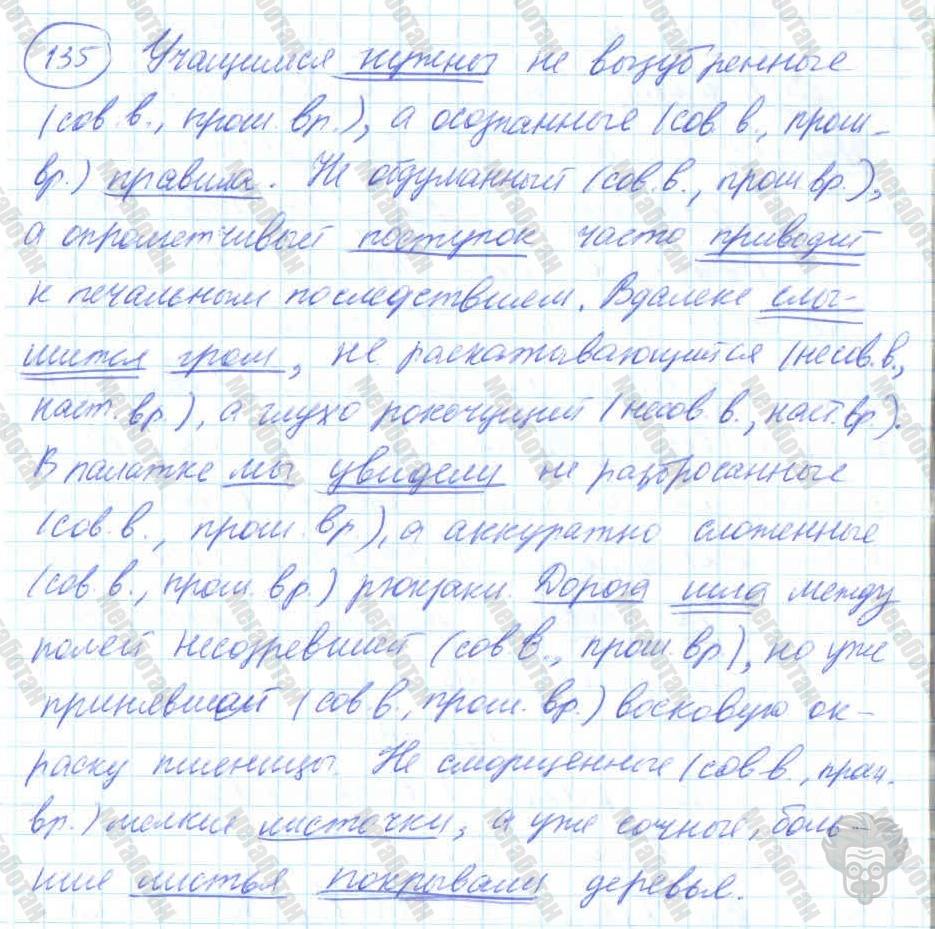 135 Учащимся нужны не вызубренные
(сов. в., прош. вр.), а осознанные (сов. в., прош.
вр.) правила. Не обдуманный (сов. в., прош. вр.),
а опрометчивый поступок часто приводит
к печальным последствиям. Вдалеке слы-
шится гром, не раскатывающийся (несов. в.,
наст. вр.), а глухо рокочущий (несов. в., наст. вр.).
В палатке мы увидели не разбросанные
(сов. в., прош. вр.), а аккуратно сложенные
(сов. в., прош. вр.) рюкзаки. Дорога шла между
полей несозревшей (сов. в., прош. вр.), но уже
принявшей (сов. в., прош. вр.) восковую ок-
раску пшеницы. Не сморщенные (сов. в., прош.
вр.) мелкие листочки, а уже сочные, боль-
шие листья покрывали деревья.
Мегаботан